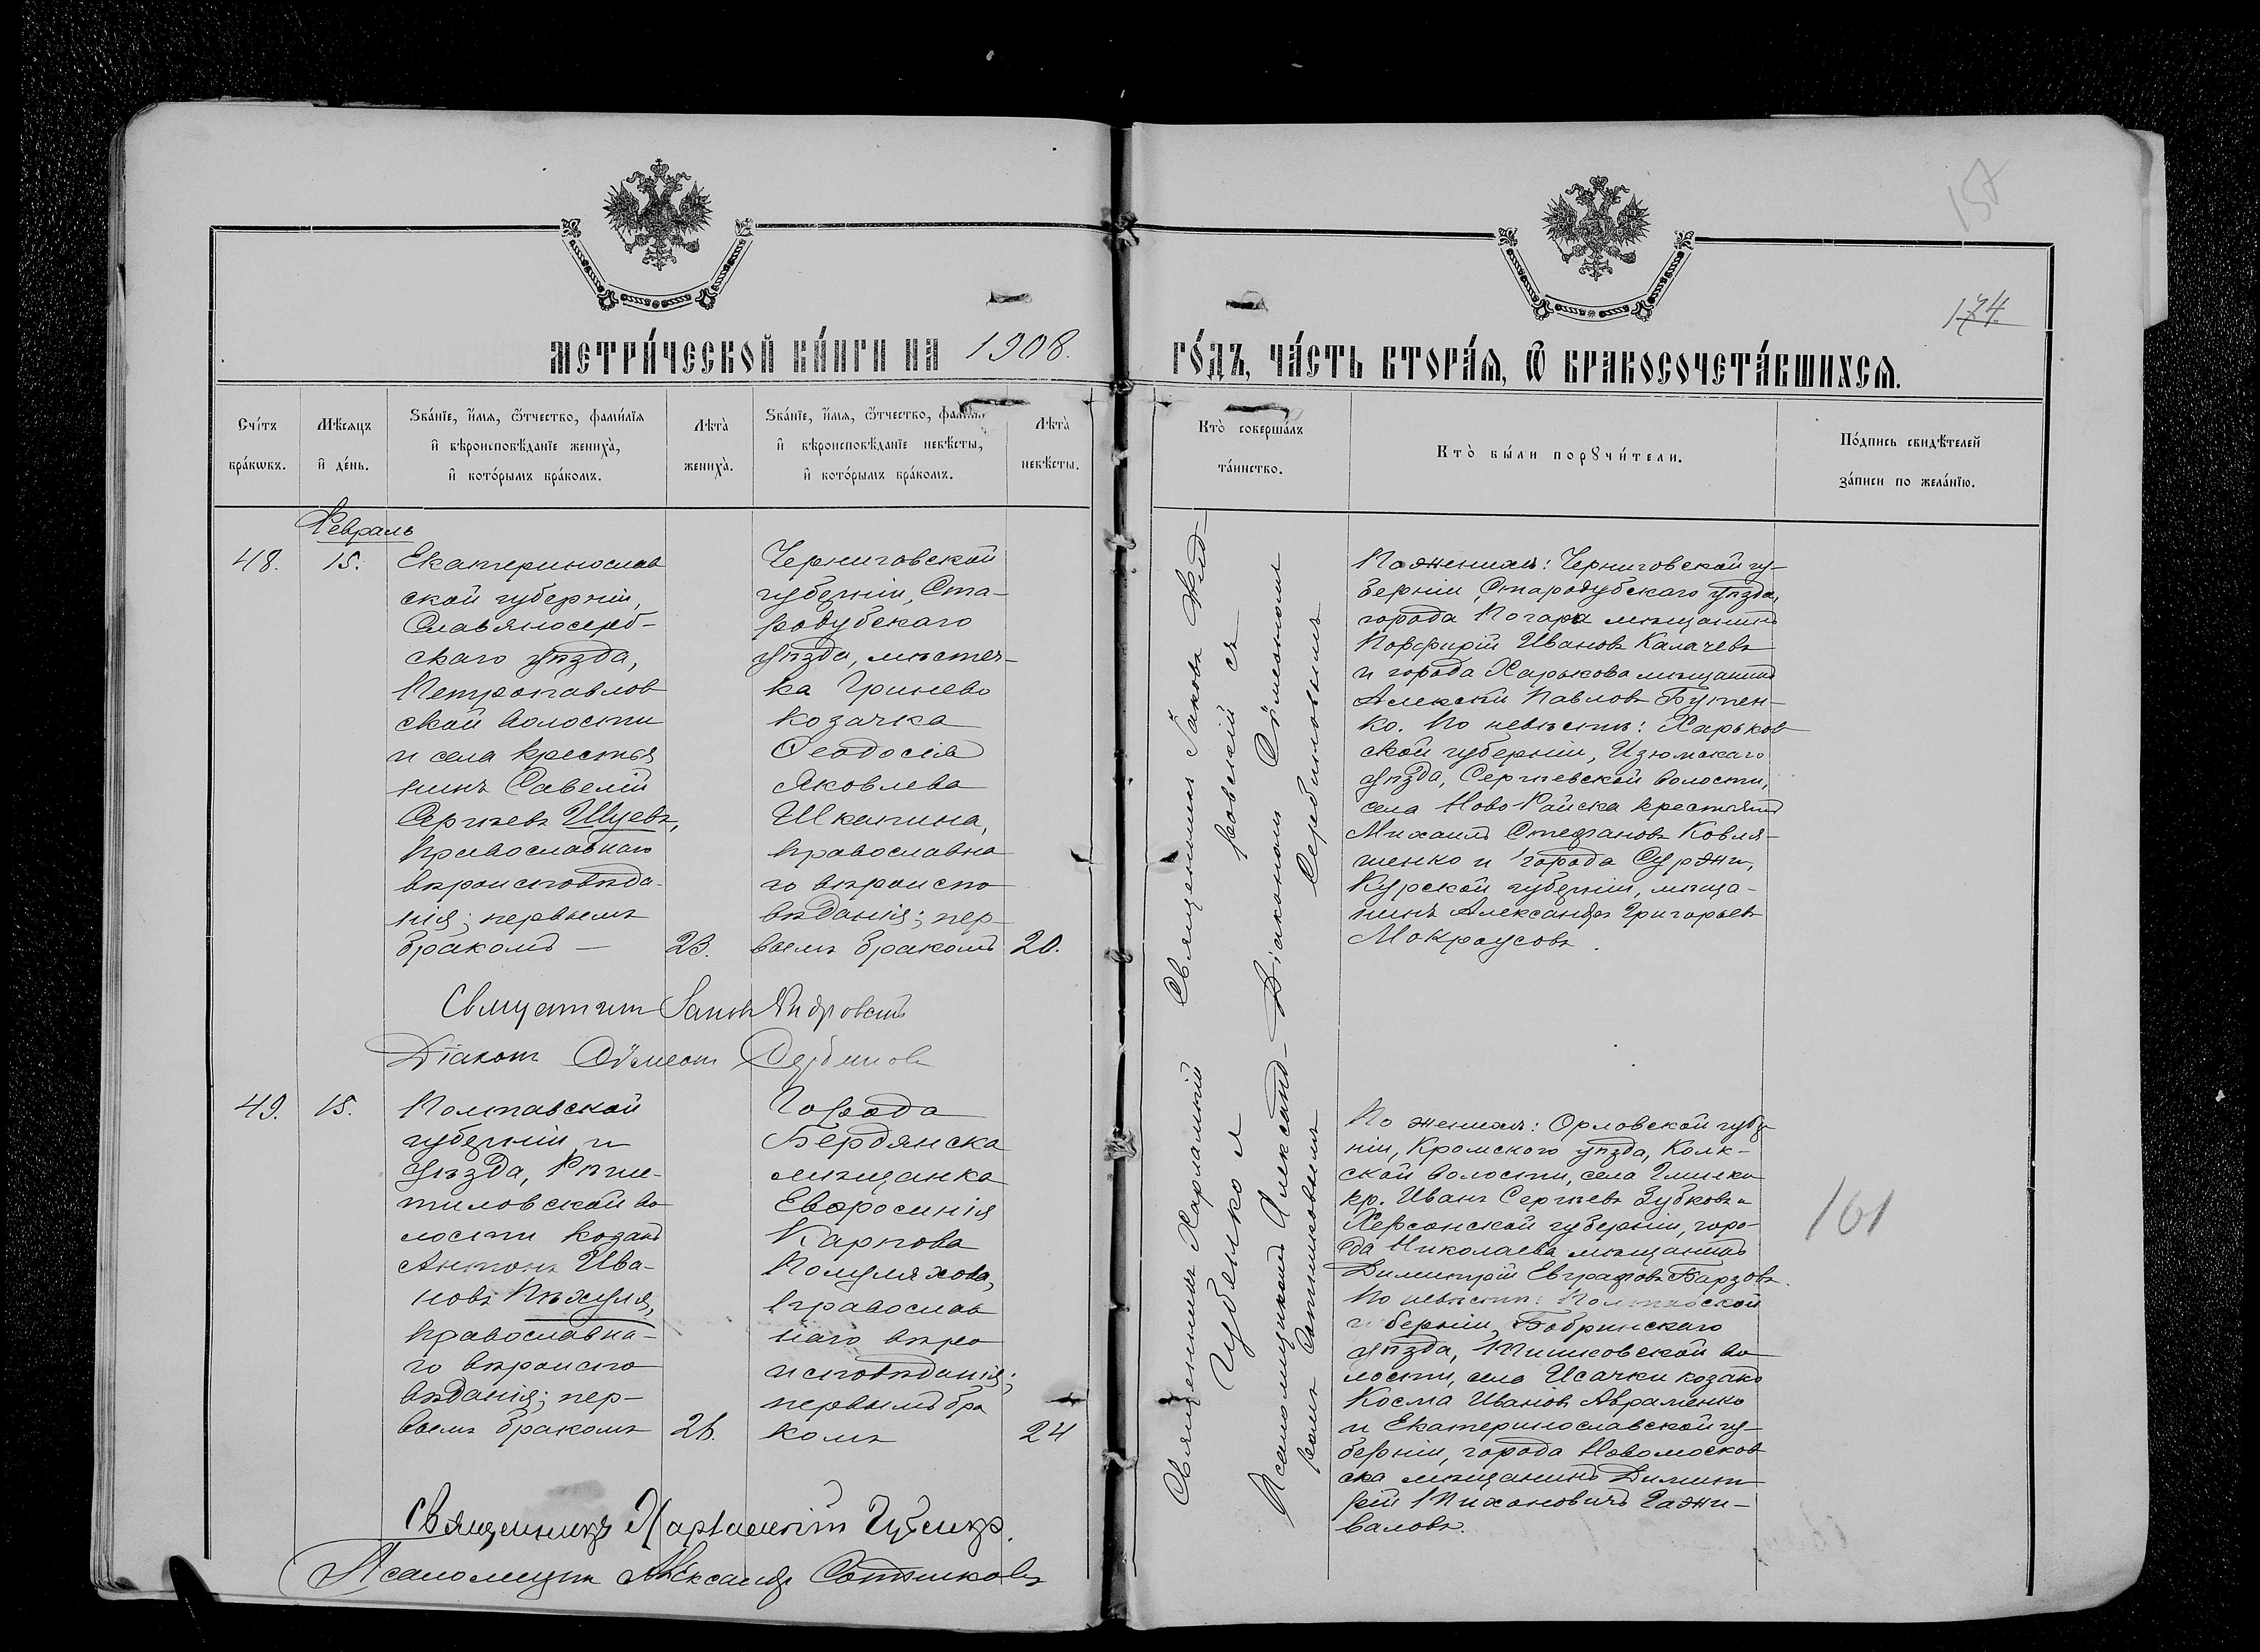 157
174.
МЕТРИ́ЧЕСКОЙ КНИ́ГИ НА 1908. ГО́ДЪ, ЧА́СТЬ ВТОРА́Я, Ѽ БРАКОСОЧЕТА́ВШИХСЯ.
Сче́тъ бра́кѡвъ.
Мѣ́сяцъ и҆ де́нь.
Ѕва́нїе, и҆́мя, ѻ҆́тчество, фами́лїя
и҆ вѣроисповѣ́данїе жениха̀,
и҆ кото́рымъ бра́комъ.
Лѣта̀ жениха̀.
Ѕва́нїе, и҆́мя, ѻ҆́тчество, фами́лїя
и҆ вѣроисповѣ́данїе невѣ́сты,
и҆ кото́рымъ бра́комъ.
Лѣта̀ невѣ́сты.
Кто̀ соверша́лъ
та́инство.
Кто̀ бы́ли порꙋчи́тели.
По́дпись свидѣ́телей
за́писи по жела́нїю.
Февраль
48.
15.
Екатеринослав
ской губерніи,
Славяносерб-
скаго уѣзда,
Петропавлов
ской волости
и села крестья
нинъ Савелій
Сергѣевъ Шуевъ,
православнаго
вѣроисповѣда-
нія; первымъ
бракомъ —
23.
Черниговской
губерніи, Ста-
родубскаго
уѣзда, мѣстеч-
ка Гринево
козачка
Ѳеодосія
Яковлева
Шкапина,
православна
го вѣроиспо
вѣданія; пер-
вымъ бракомъ
20.
Священникъ Іаковъ Ѳед-
ровскій съ
Діакономъ Сѵмеономъ
Сербиновымъ
По женихѣ: Черниговской гу-
берніи, Стародубскаго уѣзда,
города Погара мѣщанинъ
Порфирій Ивановъ Калачевъ
и города Харькова мѣщанинъ
Алексѣй Павловъ Бутен-
ко. По невѣстѣ: Харьков
ской губерніи, Изюмскаго
уѣзда, Сергѣевской волости,
села Ново-Райска крестьянинъ
Михаилъ Стефановъ Ковля-
шенко и города Суджи,
Курской губерніи, мѣща-
нинъ Александръ Григорьевъ
Мокроусовъ.
Священникъ Іаковъ
Діаконъ Сѵмеонъ Сербиновъ
49.
15.
Полтавской
губерніи и
уѣзда, Рѣше-
тиловской во
лости козакъ
Антонъ Ива-
новъ Пѣхуля,
православна-
го вѣроиспо
вѣданія; пер-
вымъ бракомъ
Города
Бердянска
мѣщанка
Евфросинія
Карпова
православ
наго вѣро
исповѣданія;
первымъ бра
комъ
24
Священникъ Харлампій
Губенко и
Псаломщикъ Александ-
ромъ Сотниковымъ
По женихѣ: Орловской губер
ніи, Кромского уѣзда,
ской волости, села
кр. Иванъ Сергѣевъ Зубковъ и
Херсонской губерніи, горо-
да Николаева мѣщанинъ
Димитрій Евграфовъ Барзовъ.
По невѣстѣ: Полтавской
губерніи,
уѣзда, во
лости, села Исачки козакъ
Косма Ивановъ Авраменко
и Екатеринославской гу-
берніи, города Новомосков
ска мѣщанинъ Димит
рій Гажи-
валовъ.
161
Священникъ Харлампій Губенко.
Псаломщикъ Александръ Сотниковъ